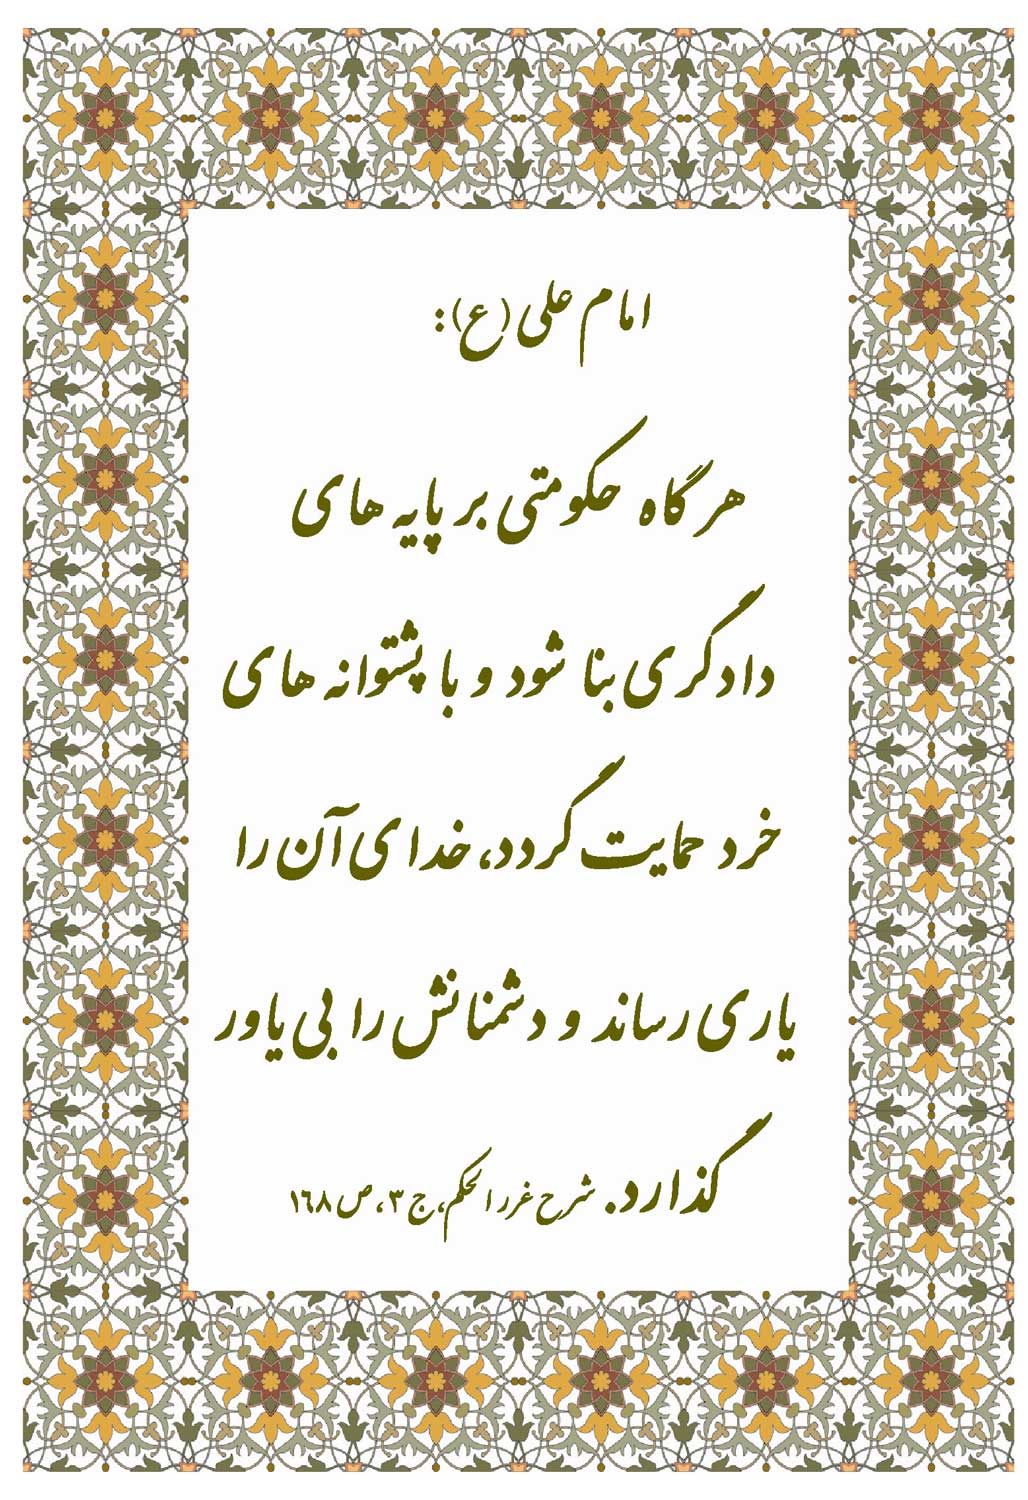 امام علی (ع):
هر گاه حکومتی بر پایه های
دادگری بنا شود و با پشتوانه های
خرد حمایت گردد، خدای آن را
یاری رساند و دشمنانش را بی یاور
گذارد. شرح غرر الحکم، ج ۳، ص ۱۶۸